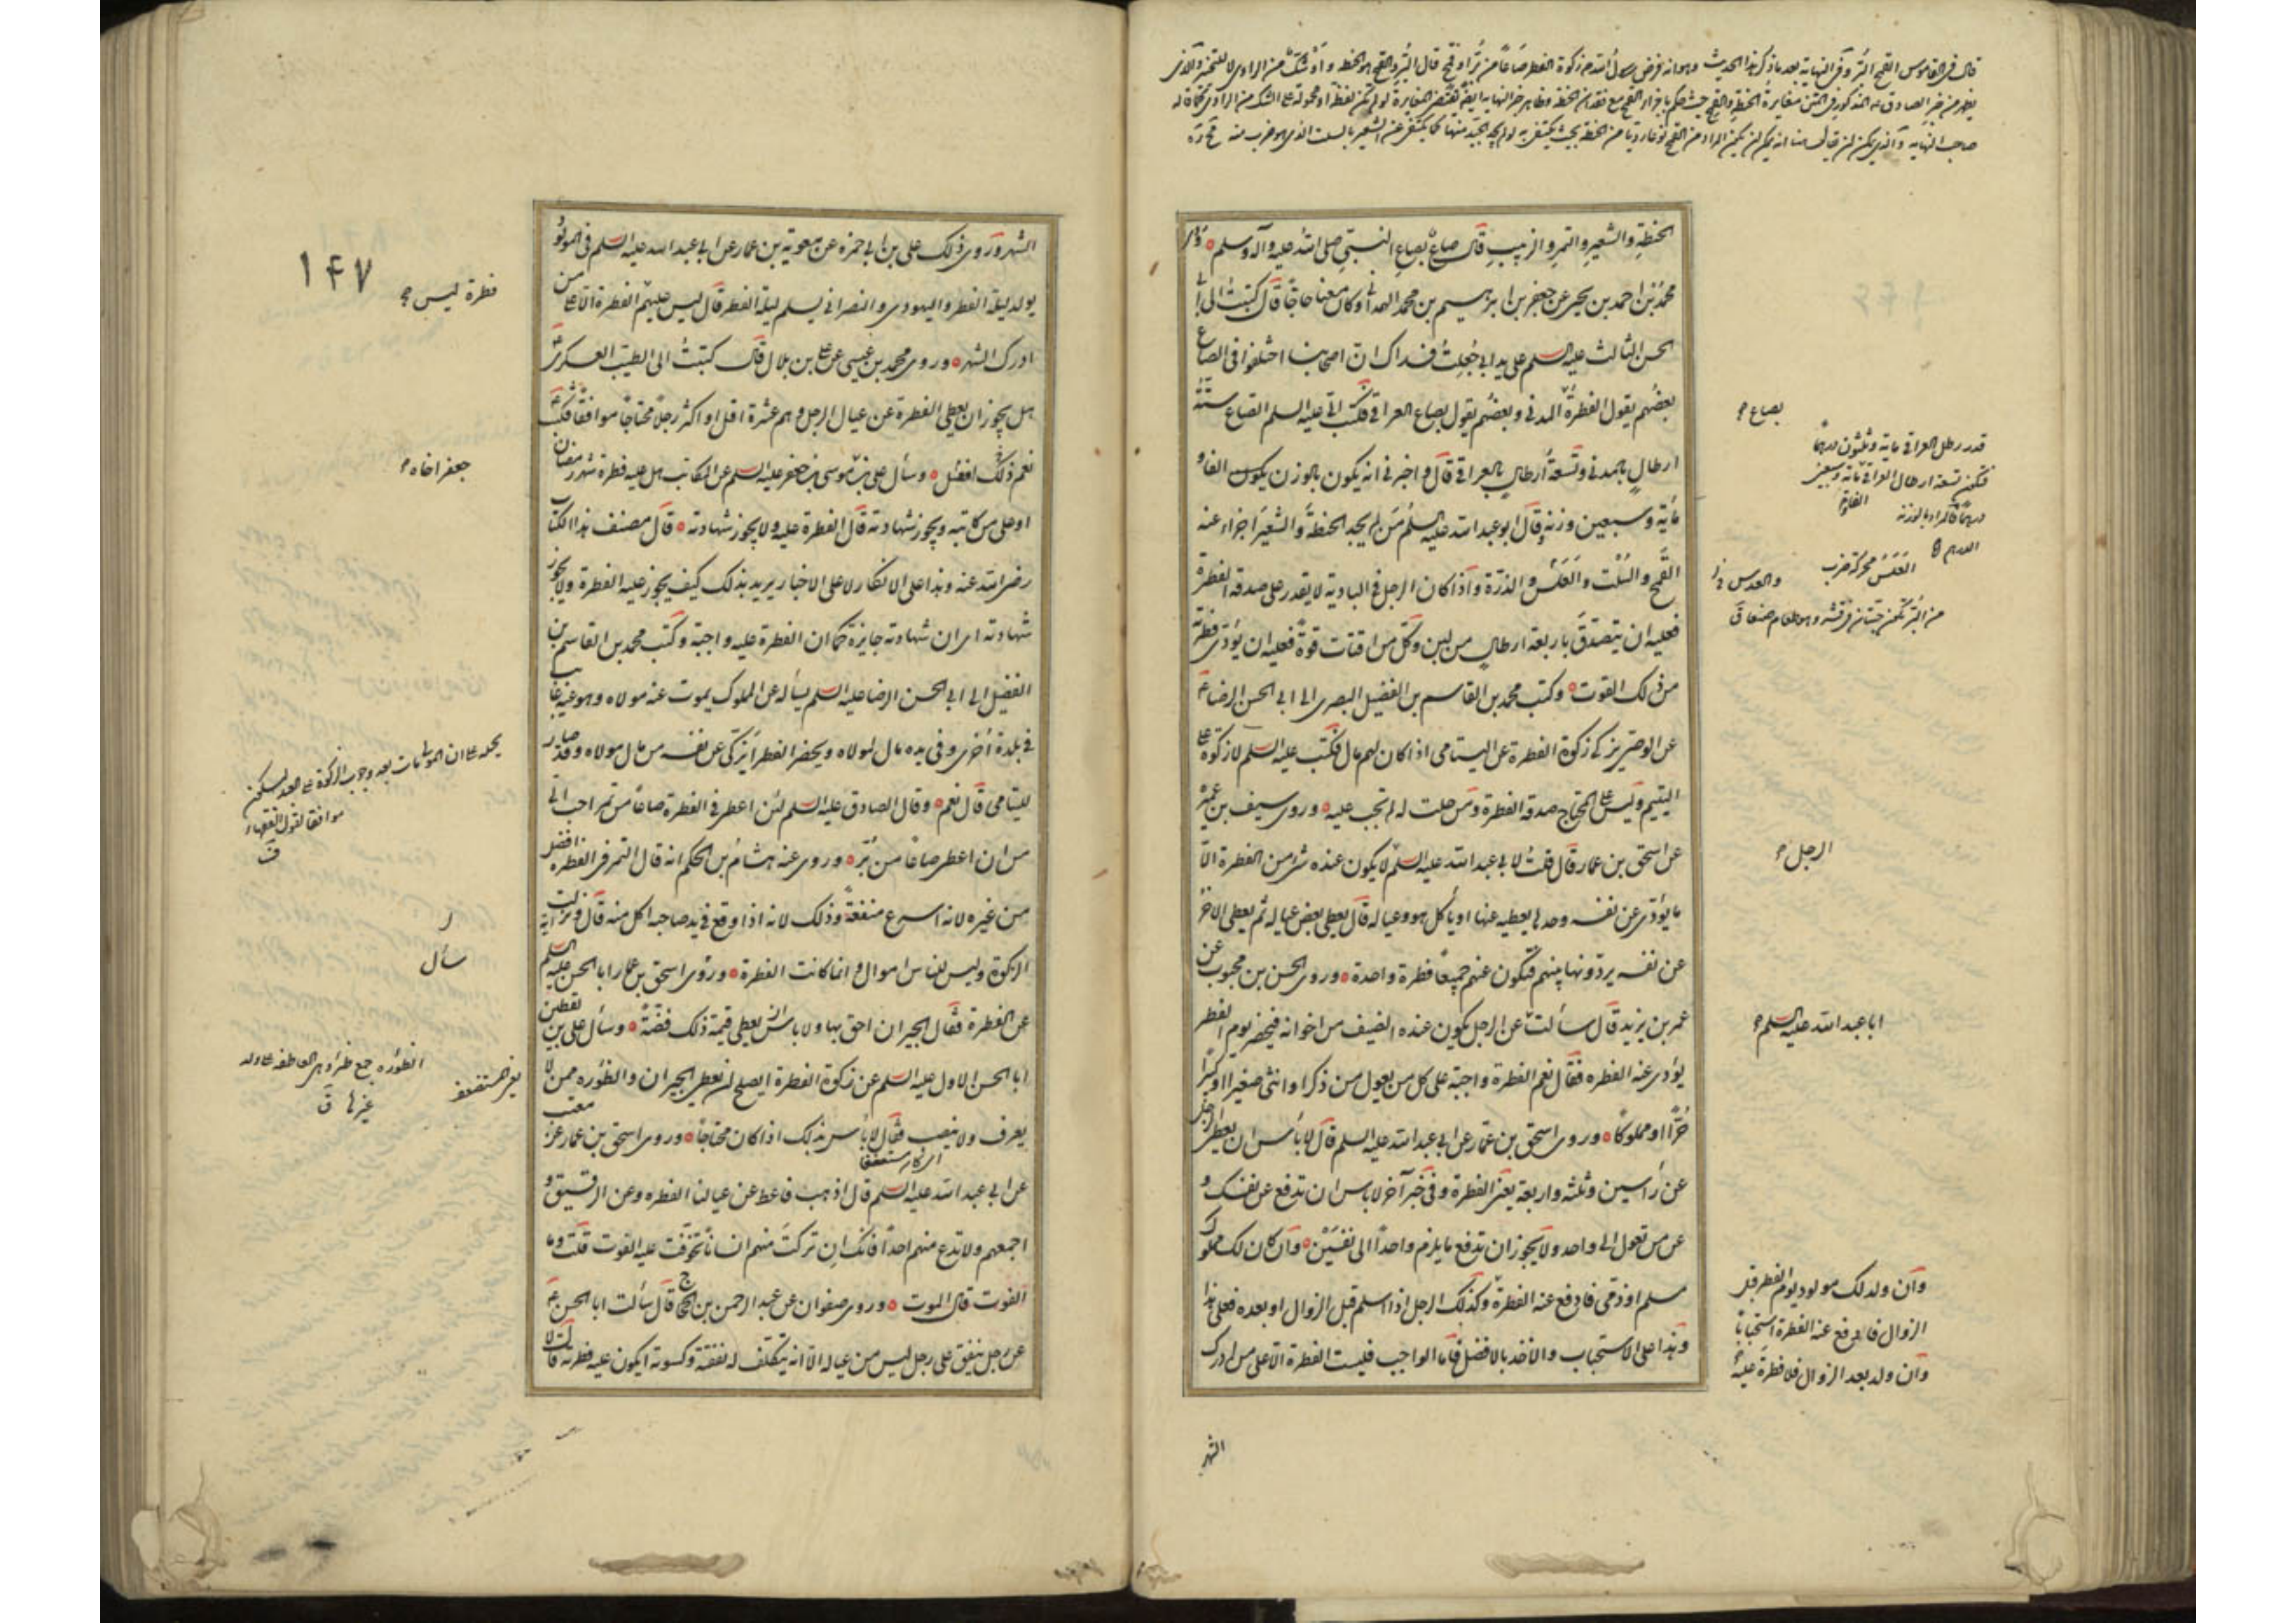 قال في القاموس القمح البر وفي النهاية بعد ما ذكر هذا الحديث وهو انه فرض رسول الله ص زكوة الفطر صاعا من بر او قمح قال البر والقمح هو الحنطة و او للشك من الراوي لا للتخيير
صاحب النهاية
الحنطةِ والشعيرِ والتمرِ والزبيبِ قال صاعٌ بصاعِ النبيّ صلى الله عليه وآله وسلم وروى
محمد بن احمد بن يحيى عن جعفر بن ابرهيم بن محمد الهمداني وكان معنا حاجّاً قال كتبتُ الى ابي
الحسن الثالث عليه السلم على يد ابي جُعِلتُ فداك ان اصحابنا اختلفوا فى الصاع
بعضُهم يقول الفطرةُ المدنى وبعضُهم يقول بصاع العراقى فكتب اليّ عليه السلم الصاع ستّةُ
ارطالٍ بالمدنى وتسعةُ ارطالٍ بالعراقى قال و اخبرنى انه يكون بالوزن يكون الفا و
مأية وسبعين وزنة وقال ابو عبد الله عليه السلم من لم يجد الحنطةَ والشعيرَ اجزاء عنه
القمح والسُلت والعَلَس والذرّة واذا كان الرجل فى البادية لا يقدر على صدقة الفطرة
فعليه ان يتصدّق باربعة ارطالٍ من لبن وكلّ من اقتات قوة فعليه ان يؤدّى فطرته
من ذلك القوت وكتب محمد بن القاسم بن الفضيل البصرى الى ابى الحسن الرضا ع
عن الوصىّ يزكى زكوة الفطرة عن اليتامى اذا كان لهم مال فكتب عليه السلم لا زكوة على
اليتيم وليس على المحتاج صدقة الفطرة ومن حلت له لم تجب عليه وروى سيف بن عميرة
عن اسحق بن عمار قال قلتُ لابى عبد الله عليه السلم لا يكون عنده شئ من الفطرة الاّ
ما يؤدّى عن نفسه وحدها يعطيه عنها او يأكل هو وعياله قال يعطى بعض عياله ثم يعطى الاخر
عن نفسه يردّونها بينهم فتكون عنهم جميعًا فطرة واحدة وروى الحسن بن محبوب عن
عمر بن يزيد قال سألت عن الرجل يكون عنده الضيف من اخوانه فيحضر يوم الفطر
يؤدى عنه الفطره فقال نعم الفطرة واجبة على كل من يعول من ذكر او انثى صغيرا او كبيرًا
حُرًّا او مملوكًا وروى اسحق بن عمّار عن ابى عبد الله عليه السلم قال لا بأس ان يعطى الرجل
عن رأسين وثلثه واربعة يعنى الفطرة وفى خبر آخر لا باس ان تدفع عن نفسك و
عن من تعول الى واحد ولا يجوز ان تدفع ما يلزم واحداً الى نفسَيْن وان كان لك مملوك
مسلم او ذمّى فادفع عنه الفطرة وكذلك الرجل اذا اسلم قبل الزوال او بعده فعلى هذا
وهذا على الاستحباب والاخذ بالافضل فاما الواجب فليست الفطرة الاّ على من ادرك
بصاع
قدر رطل العراقى ماية وثلثون درهمًا
فتكون تسعة ارطال العراقى
العَلَس محركة ضرب
والعدس
من البُر تكون حبتان فى قشر وهو طعام صنعا ق
الرجل
ابا عبد الله عليه السلم
وان ولد لك مولود يوم الفطر قبل
الزوال فادفع عنه الفطرة استحبابًا
وان ولد بعد الزوال فلا فطرة عليه
الشهر
الشهر وروى ذلك على بن ابى حمزه عن معوية بن عمار عن ابى عبد الله عليه السلم فى المولود
يولد ليلة الفطر واليهودى والنصرانى يسلم ليلة الفطر قال ليس عليهم الفطرة الا على من
ادرك الشهر وروى محمد بن عيسى عن على بن بلال قال كتبتُ الى الطيب العسكرى
هل يجوز ان يعطى الفطرة عن عيال الرجل وهم عشرة اقل او اكثر رجلاً محتاجاً موافقًا فكتب
نعم ذلك افضل وسأل على بن موسى بن جعفر عليه السلم عن المكاتب هل عليه فطرة شهر رمضان
او على من كاتبه ويجوز شهادته قال الفطرة عليه ولا يجوز شهادته قال مصنف هذا الكتاب
رضى الله عنه وهذا على الانكار لا على الاخبار يريد بذلك كيف يجوز عليه الفطرة ولا يجوز
شهادته اى ان شهادته جايزة كما ان الفطرة عليه واجبة وكتب محمد بن القاسم بن
الفضيل الى ابى الحسن الرضا عليه السلم يسأله عن المملوك يموت عنه مولاه وهو عنه غايب
فى بلدة اُخرى وفى يده مال لمولاه ويحضر الفطر ايزكّى عن نفسه من مال مولاه وقد صار
لليتامى قال نعم وقال الصادق عليه السلم لئن اعطى فى الفطرة صاعاً من تمر احب الى
من ان اعطى صاعًا من بُرّ وروى عنه هشام بن الحكم انه قال التمر فى الفطرة افضل
من غيره لانه اسرع منفعةً وذلك لانه اذا وقع فى يد صاحبه اكل منه قال ونزلت آية
الزكوة وليس للناس اموال و انما كانت الفطرة وروى اسحق بن عمار ابا الحسن عليه السلم
عن الفطرة فقال الجيران احق بها ولا باس ان يعطى قيمة ذلك فضّةً وسأل على بن يقطين
ابا الحسن الاول عليه السلم عن زكوة الفطرة ايصلح ان يعطى الجيران والظؤره ممن لا
يعرف ولا ينصب فقال لا بأس بذلك اذا كان محتاجًا وروى اسحق بن عمار عن معتب
عن ابى عبد الله عليه السلم قال اذهب فاعط عن عيالنا الفطره وعن الرقيق و
اجمعهم ولا تدع منهم احدًا فانك ان تركتَ منهم انسانًا تخوّفت عليه الفوت قلت وما
الفوت قال الموت وروى صفوان عن عبد الرحمن بن الحجاج قال سألت ابا الحسن ع
عن رجل ينفق على رجل ليس من عياله الاّ انه يتكلّف له نفقته وكسوته ايكون عليه فطرته قال لا
۱۴۷
فطرة ليس
جعفر اخاه
يحمله على ان المولى مات بعد وجوب الزكوة
موافقا لقول الفقهاء
سأل
الظؤره جمع ظئر وهى العاطفة على ولد
غيرها ق